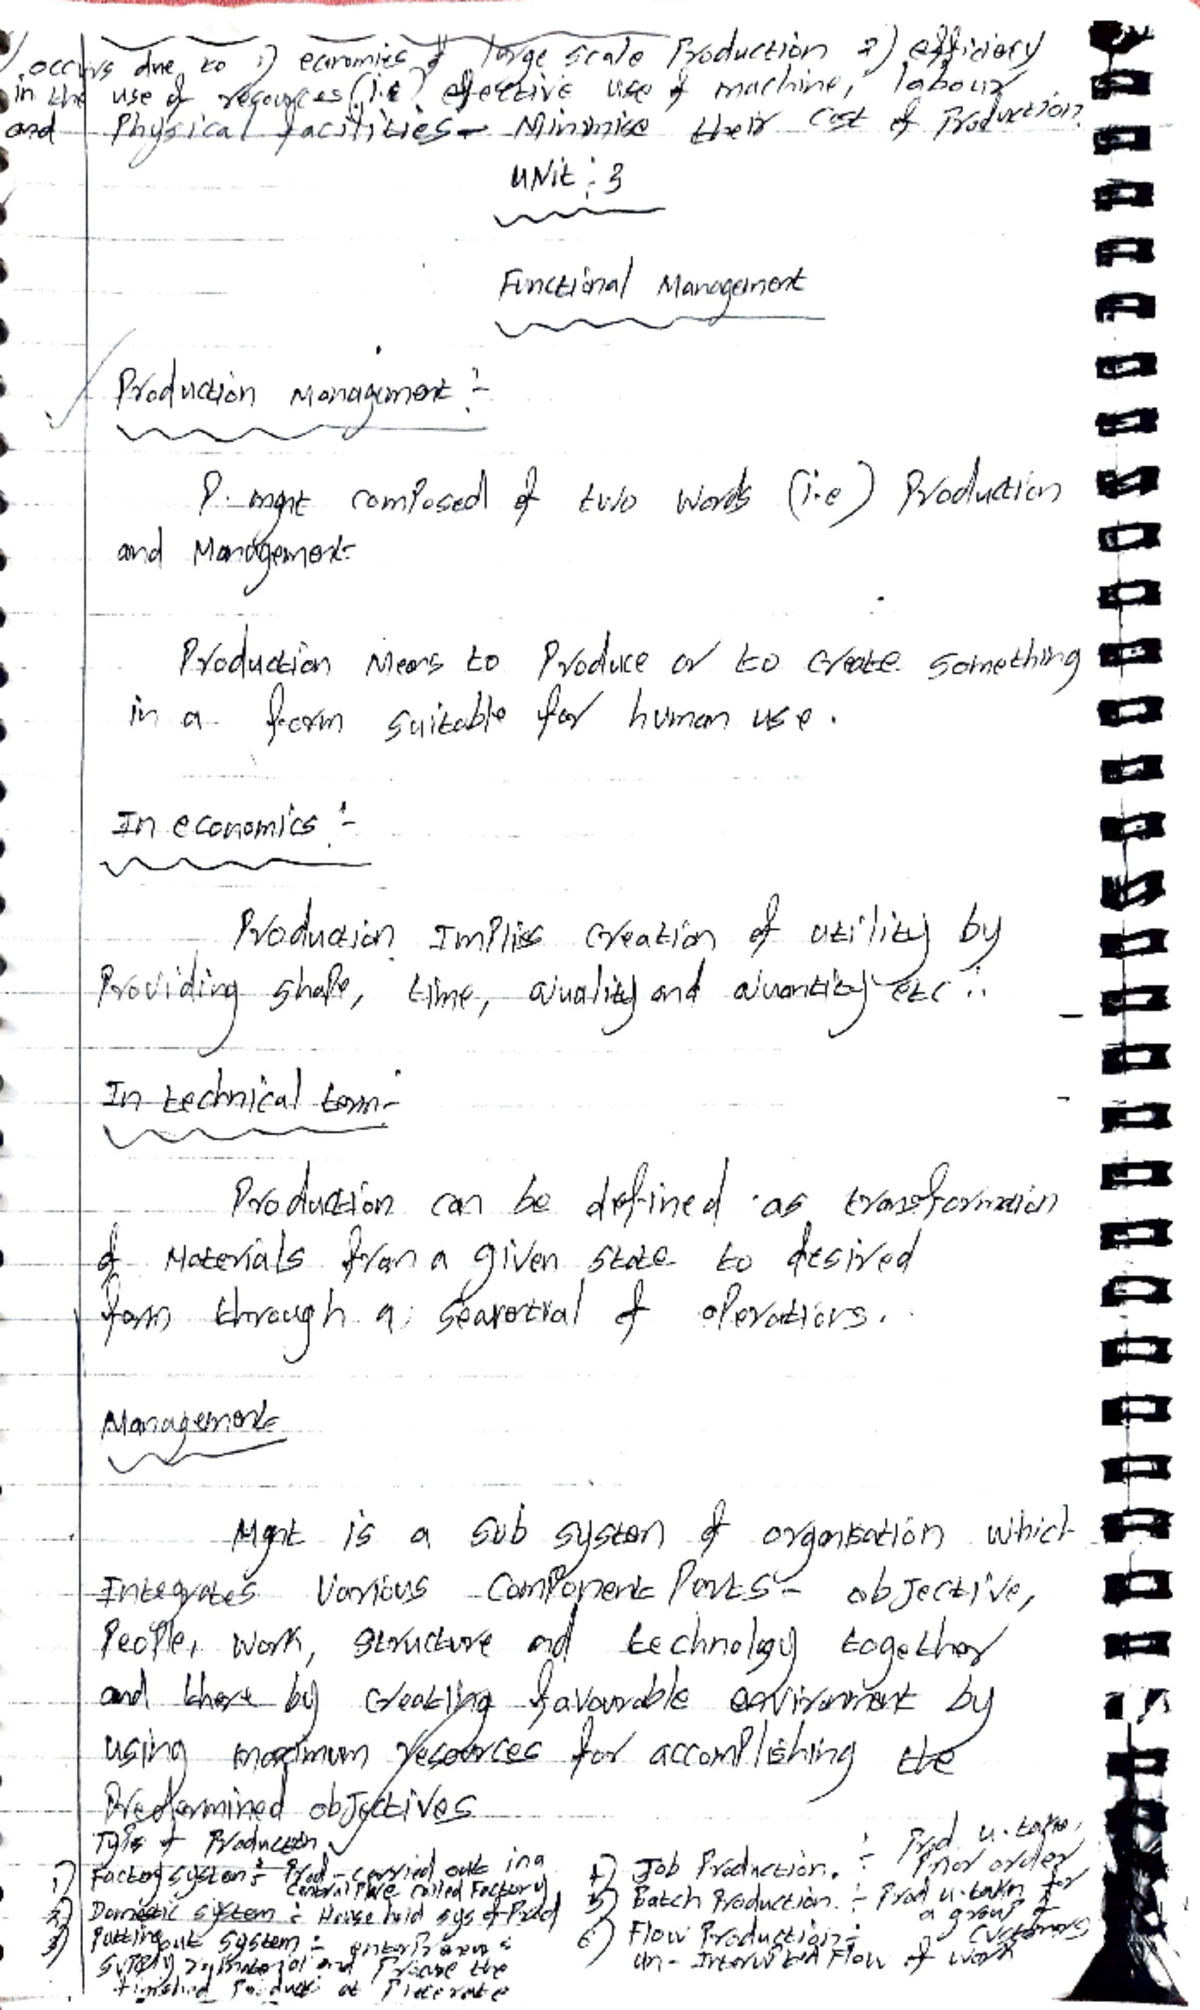 occurs due to 1) economies of large scale Production 2) efficiency
in the use of resources (i.e) effective use of machine, labour
and Physical facilities - Minimise their cost of Production.
UNit : 3
Functional Management
Production Management :-
P. mgnt composed of two words (i.e) Production
and Management.
Production Means to Produce or to create something
in a form suitable for human use.
In economics :-
Production Implies creation of utility by
Providing shape, time, quality and quantity etc..
In technical term:-
Production can be defined as transformation
of Materials from a given state to desired
form through a of operations.
Management
Mgnt is a sub system of organisation which
Integrates Various Component Parts - objective,
People, work, structure and technology together
and there by creating favourable environment by
using maximum resources for accomplishing the
Predermined objectives
Type of Production
1) Factory system :- Prod - carried out in a
Central Place called Factory
2) Domestic system :- House hold sys of Prod
3) Putting out system :-
supply r. material and Procure the
finished Product at Piecerate
4) Job Production. :- Prod u. taken.
Prior order
5) Batch Production. :- Prod u. taken for
a group of
customers
6) Flow Production :-
un - Interrupted Flow of work